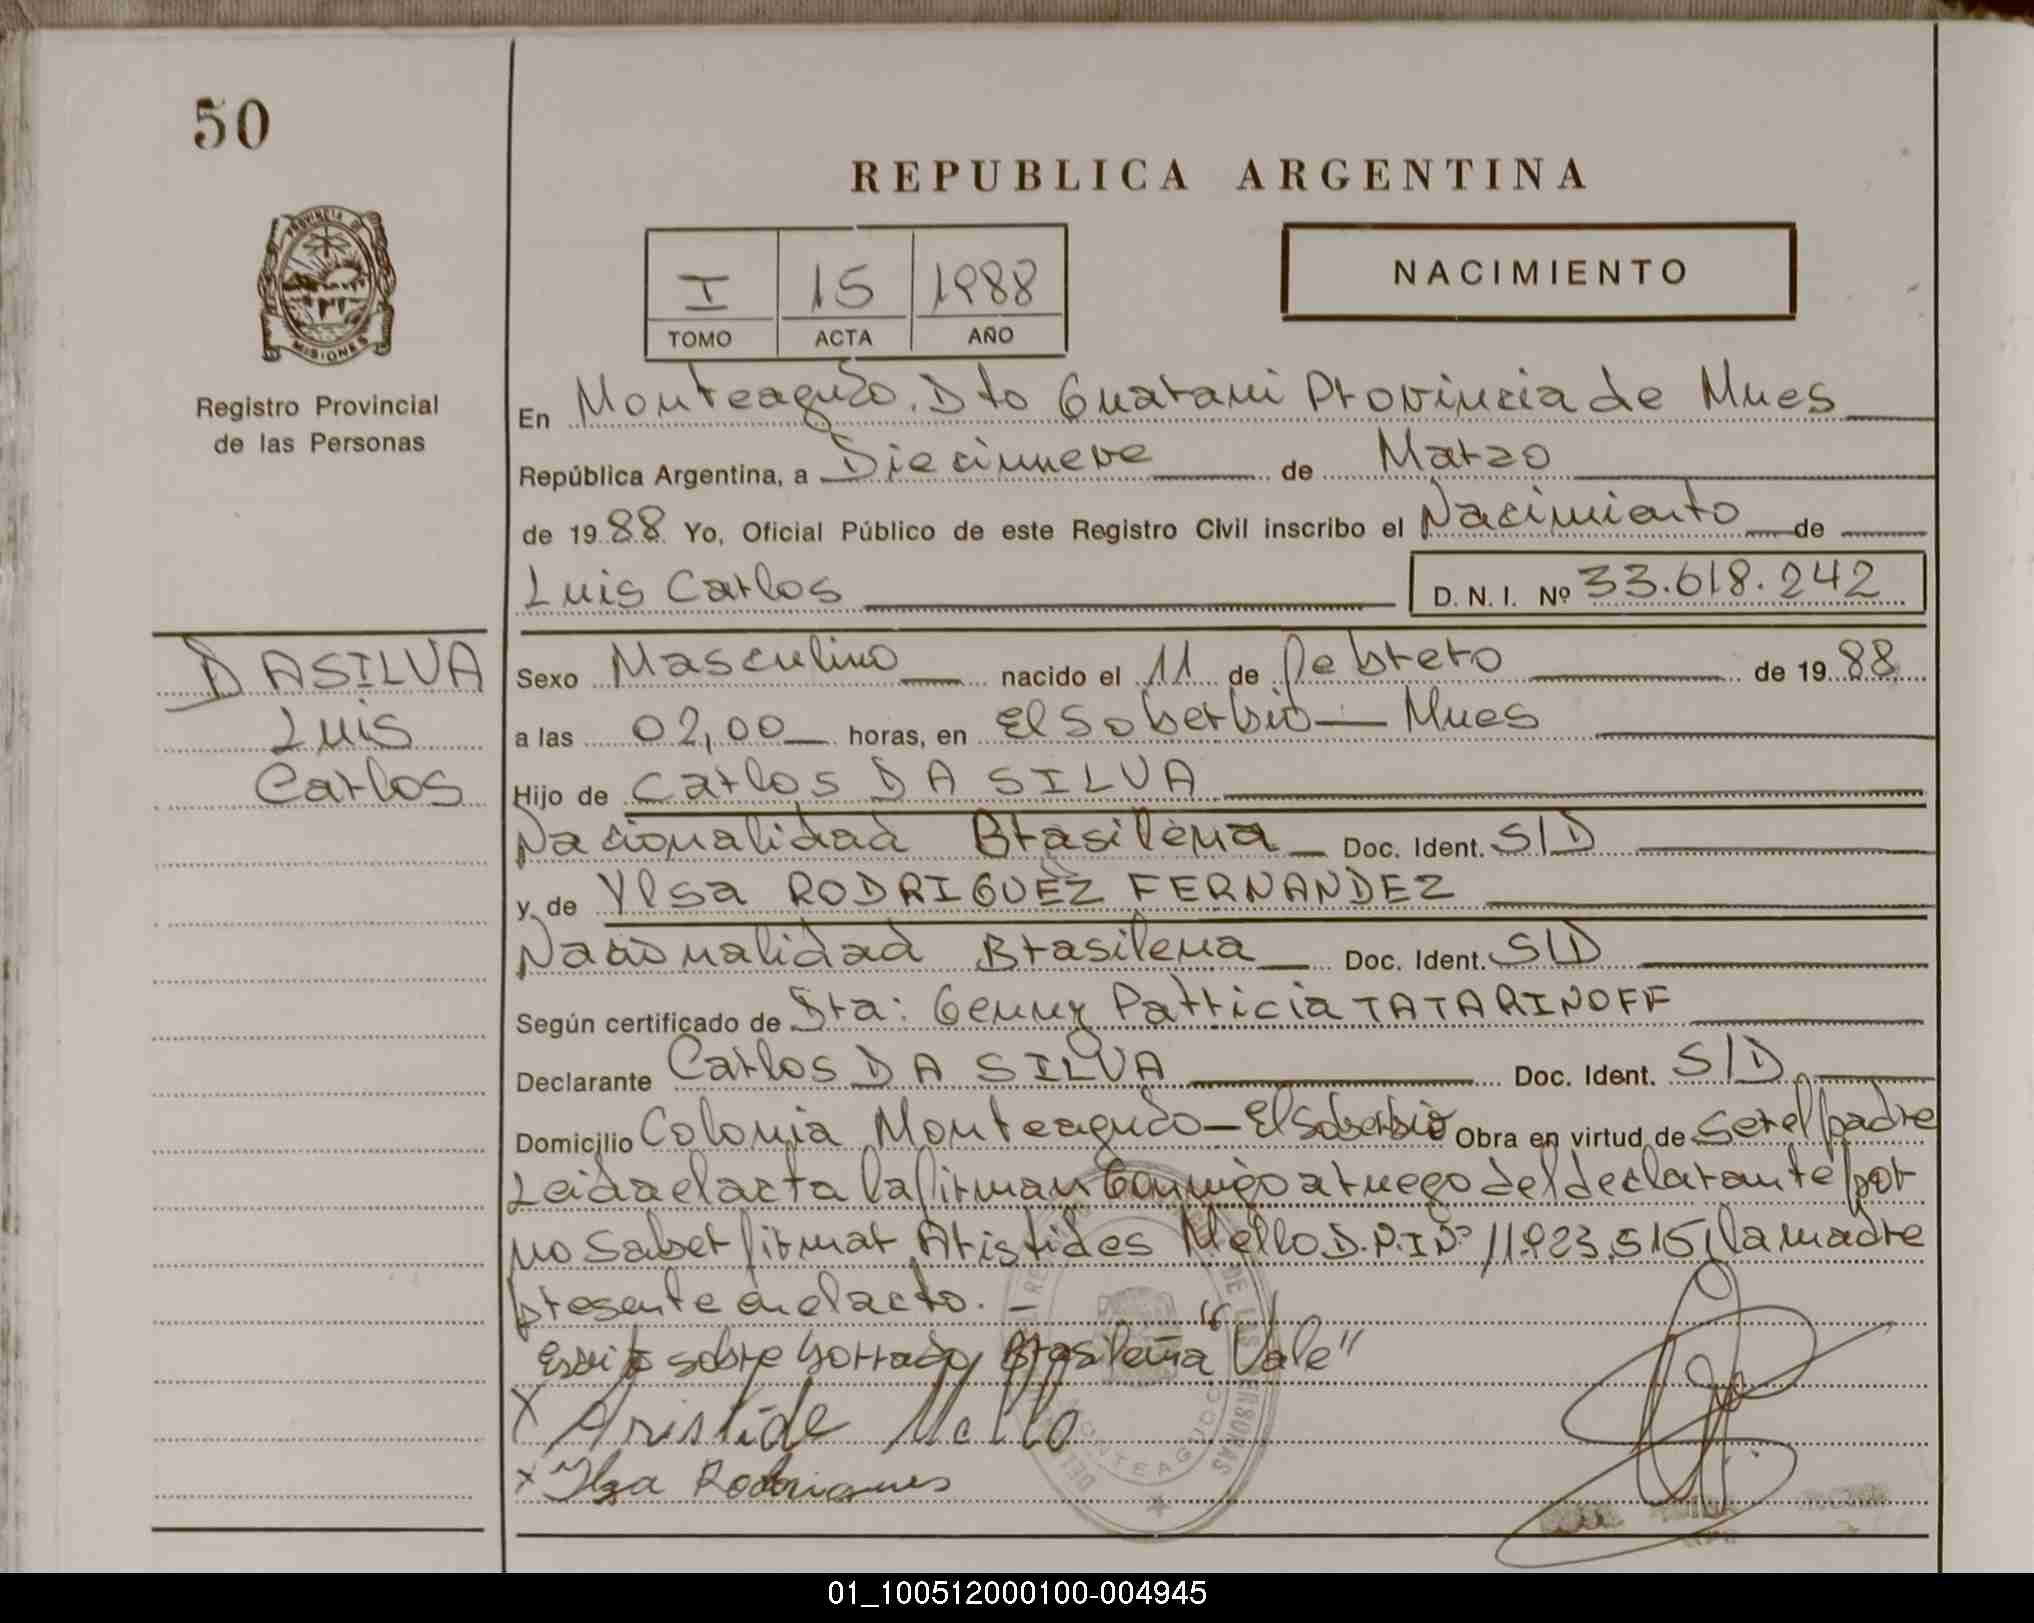 50
REPUBLICA ARGENTINA
PROVINCIA DE
MISIONES
Registro Provincial
de las Personas
I 15 1988
TOMO ACTA AÑO
NACIMIENTO
En Monteagudo. Dto Guarani Provincia de Mnes
República Argentina, a Diecinueve de Marzo
de 1988 Yo, Oficial Público de este Registro Civil inscribo el Nacimiento de
Luis Carlos D. N. I. Nº 33.618.242
DASILVA
Luis
Carlos
Sexo Masculino nacido el 11 de febrero de 1988
a las 02,00 horas, en El Soberbio — Mnes
Hijo de Carlos DA SILVA
Nacionalidad Brasileña Doc. Ident. S/D
y de Ylsa RODRIGUEZ FERNANDEZ
Nacionalidad Brasilena Doc. Ident. S/D
Según certificado de Sra: Genny Patricia TATARINOFF
Declarante Carlos DA SILVA Doc. Ident. S/D
Domicilio Colonia Monteagudo — El Soberbio Obra en virtud de ser el padre
Leida el acta la firman Conmigo a ruego del declarante por
no saber firmar Aristides Mello D.N.I Nº 11.923.515, la madre
presente en el acto. —
Escrito sobre borrado, Brasileña "Vale"
X Aristide Mello
X Ilza Rodrigues
DE LAS PERSONAS
MONTEAGUDO
01_100512000100-004945